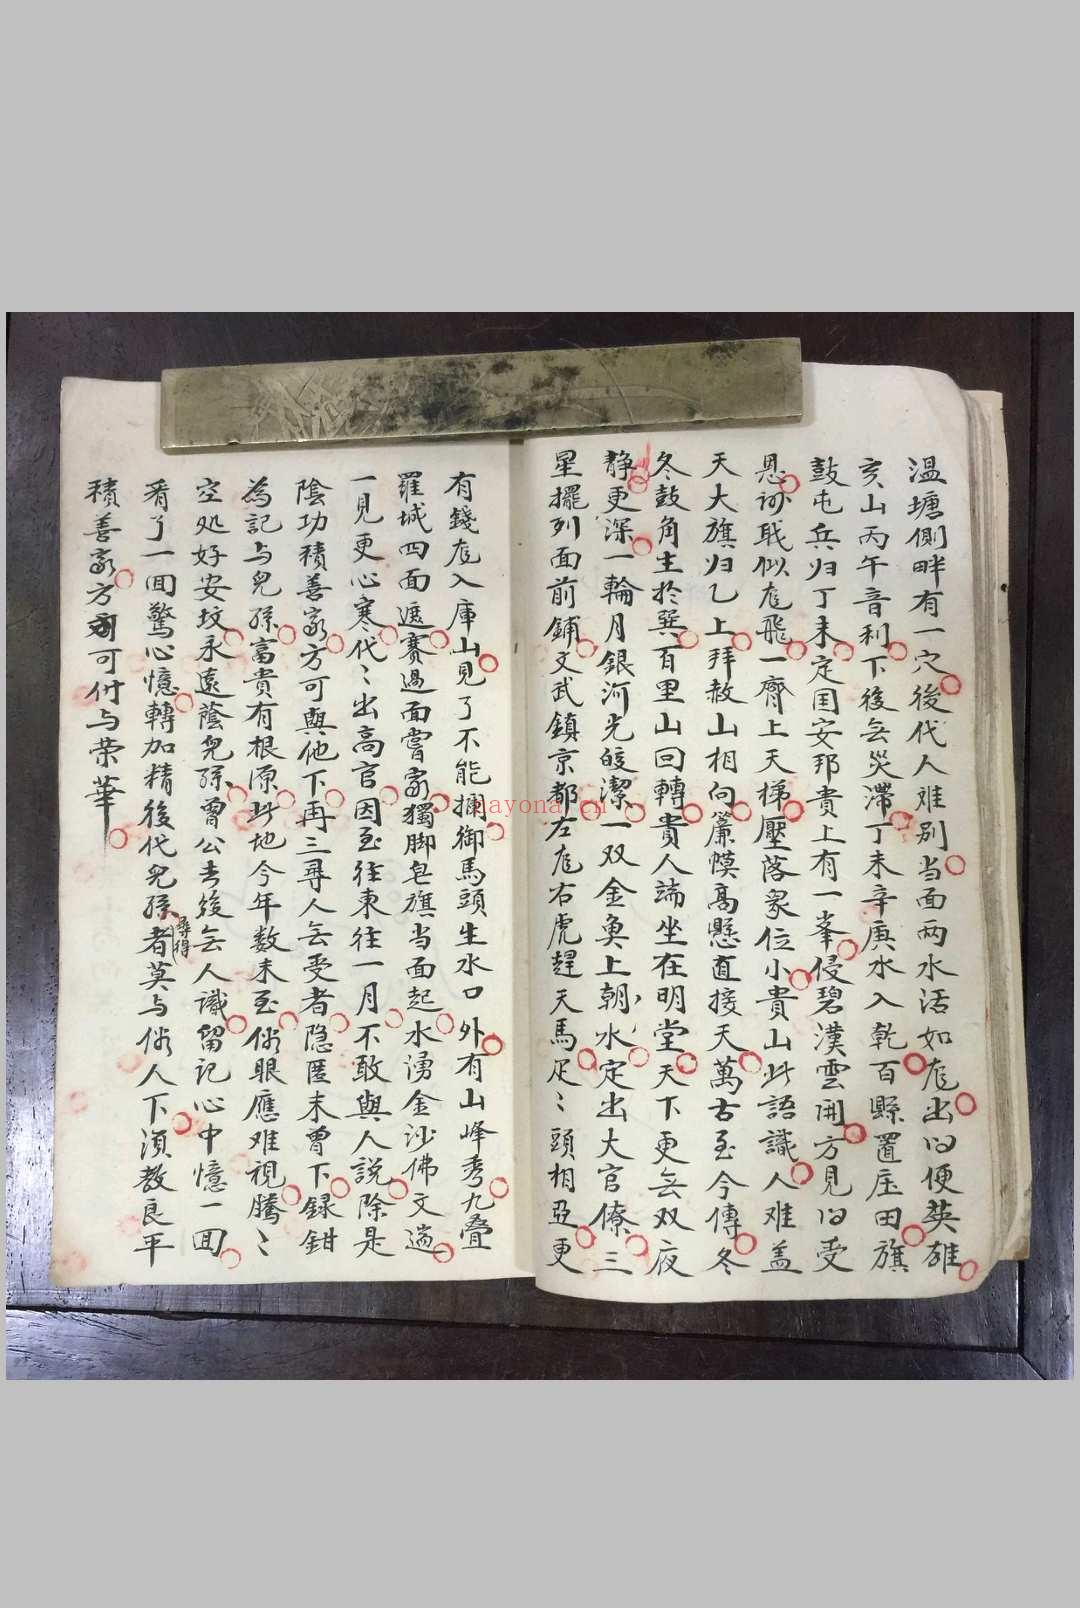 温塘側畔有一穴後代人难别当面两水活如龙出的便英雄
亥山丙午音利下後无災滞丁未辛庚水入乾百縣置庄田旗
鼓屯兵归丁未定国安邦貴上有一峯侵碧漢雲開方見的受
恩 職似龙飛一齊上天梯壓落衆位小貴山此語識人难盖
天大旗归乙上拜赦山相向簾幙高懸直接天萬古至今傳冬
冬鼓角生於巽百里山回轉貴人端坐在明堂天下更无双夜
静更深一輪月銀河光皎潔一双金魚上朝水定出大官僚三
星擺列面前鋪文武鎮京都左龙右虎趕天馬足〻頭相亞更
有錢龙入庫山見了不能攔御馬頭生水口外有山峰秀九叠
羅城四面遮赛過面嘗家獨脚皂旗当面起水湧金沙佛文遍
一見更心寒代〻出高官因至往東往一月不敢與人説除是
陰功積善家方可與他下再三尋人无受者隐匿未曾下録鉗
為記与兒孫富貴有根源此地今年数未至俗眼應难視騰〻
空处好安坟永遠蔭兒孫曾公去後无人識留记心中憶一回
看了一回驚心憶轉加精後代兒孫尋得者莫与俗人下湏教良平
積善家方可付与荣華
nayona.cn